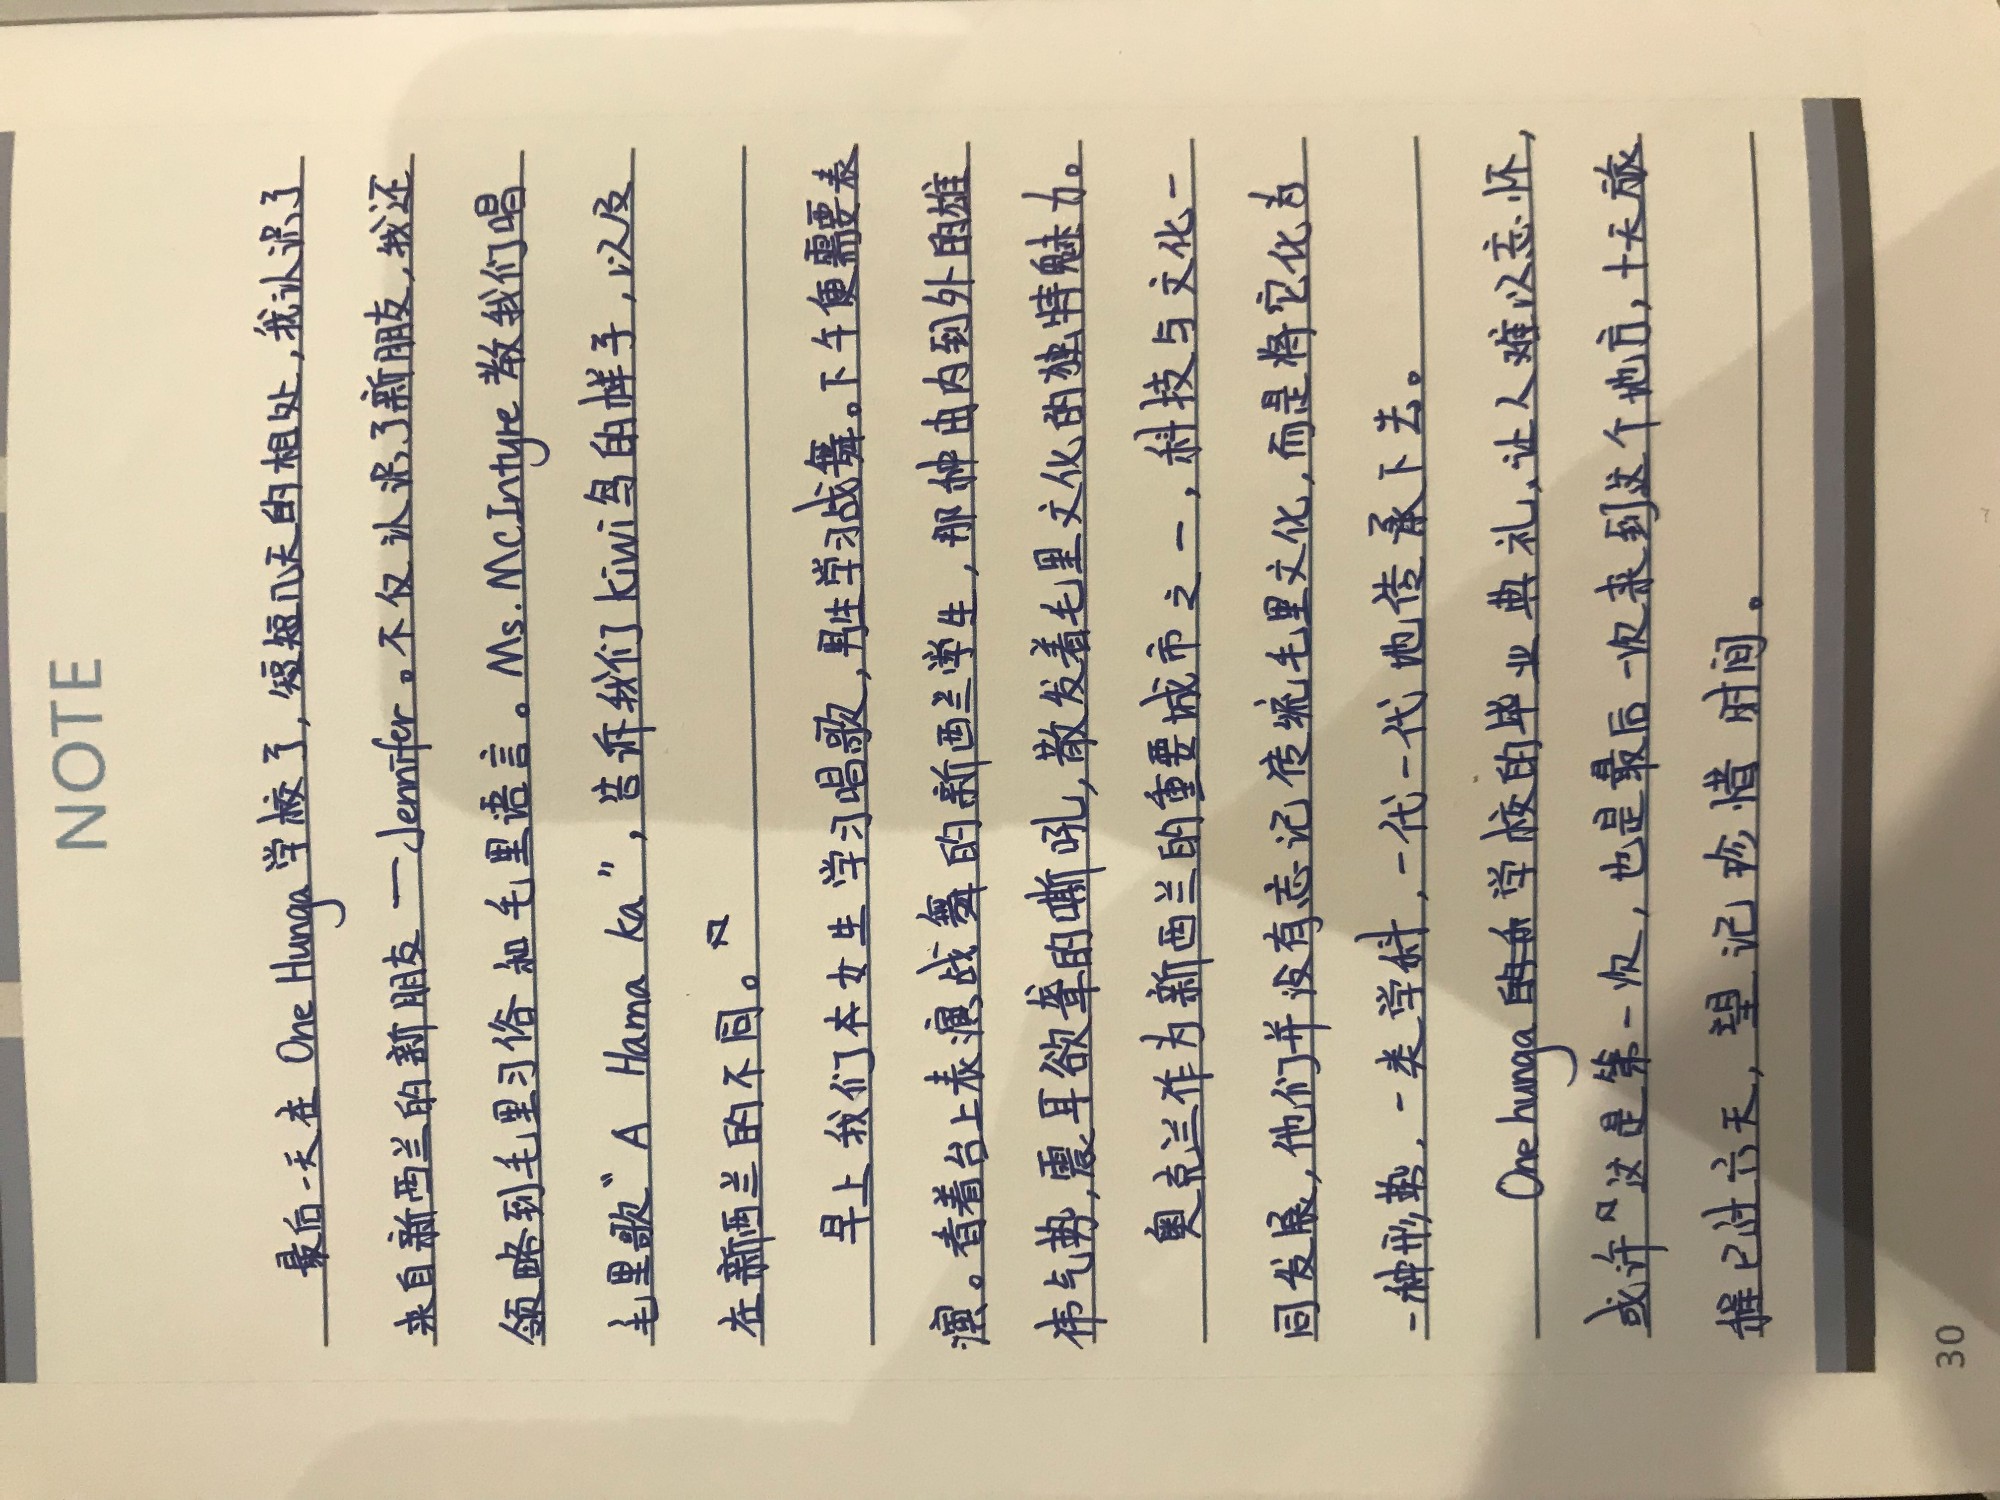 NOTE
最后一天在 One Hunga 学校了，短短几天的相处，我认识了
来自新西兰的新朋友——Jennifer。不仅认识了新朋友，我还
领略到毛里习俗和毛里语言。Ms.McIntyre 教我们唱
毛里歌“A Hama ka”，告诉我们 kiwi 鸟的样子，以及
在新西兰的不同。
早上我们本女生学习唱歌，男生学习战舞。下午便需要表
演。看着台上表演战舞的新西兰学生，那种由内到外的雄
伟气势，震耳欲聋的嘶吼，散发着毛里文化的独特魅力。
奥克兰作为新西兰的重要城市之一，科技与文化一
同发展，他们并没有忘记传统毛里文化，而是将它化为
一种形势，一类学科，一代一代地传承下去。
One hunga 学校的毕业典礼，让人难以忘怀，
或许这是第一次，也是最后一次来到这个地方，十天旅
程已过六天，望记珍惜时间。
30